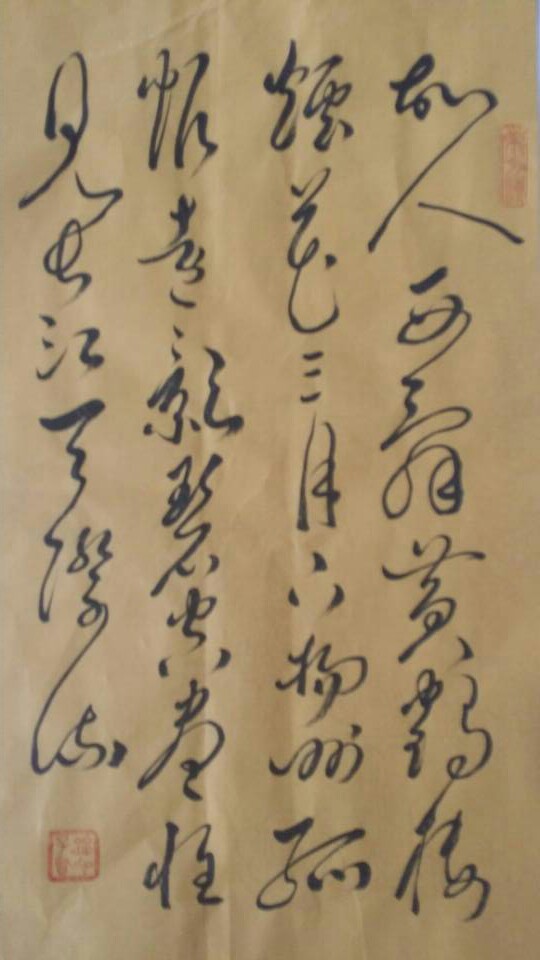 故人西辭黄鶴樓
煙花三月下揚州孤
帆遠影碧空盡惟
見長江天際流